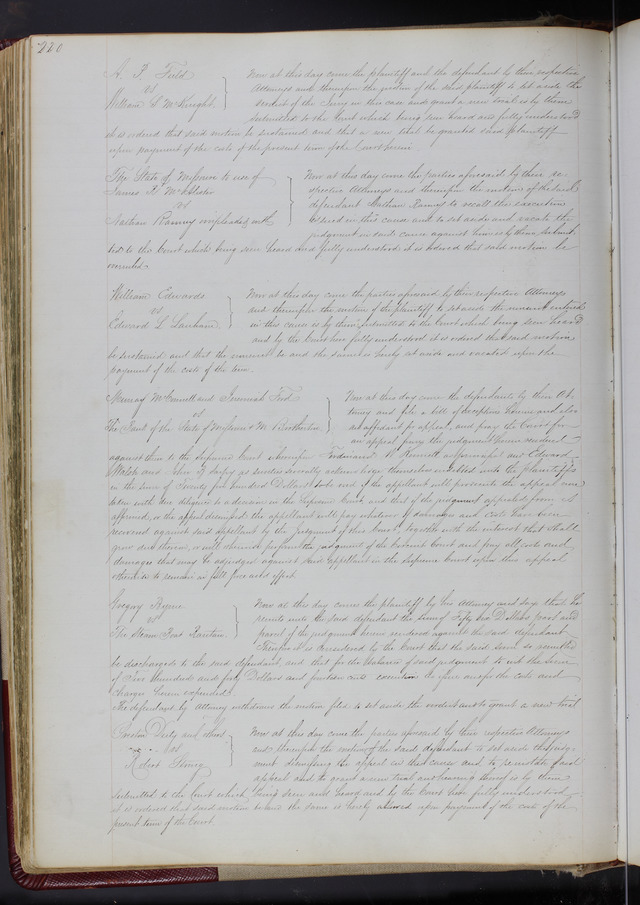 220
A. P. Field
vs
William S. McKnight
Now at this day come the plaintiff and the defendant by their respective
Attorneys and thereupon the motion of the said plaintiff to set aside the
verdict of the Jury in this case and grant a new trial is by them
submitted to the Court which being seen heard and fully understood
it is ordered that said motion be sustained and that a new trial be granted said plaintiff
upon payment of the costs of the present term of the Court herein
The State of Missouri to use of
James A McAlister
vs
Nathan Ranney impleaded with
Now at this day come the parties aforesaid by their re
spective Attorneys and thereupon the motion of
defendant Nathan Ranney to recall the execution
issued in this cause and to set aside and vacate the
judgment in said cause against him is by them submit
ted to the Court which being seen heard and fully understood it is ordered that said motion be
overruled
William Edwards
vs
Edward L Lanham
Now at this day come the parties aforesaid by their respective Attorneys
and thereupon the motion of the plaintiff to set aside the nonsuit entered
in this cause is by them submitted to the Court which being seen heard
and by the Court here fully understood it is ordered that said motion
be sustained and that the nonsuit be and the same is hereby set aside and vacated upon the
payment of the costs of the term
Murray McConnell and Jeremiah Ford
vs
The Bank of the State of Missouri & M Brotherton
Now at this day come the defendants by their At
torney and file a bill of exceptions herein and also
an affidavit for appeal, and pray the Court for
an appeal from the judgment herein rendered
against them to the Supreme Court whereupon Ferdinand Kennett and Edward
Walsh and John as securities severally acknowledge themselves indebted unto the plaintiffs
in the sum of Twenty five hundred Dollars to be void if the appellant will prosecute the appeal now
taken with due diligence to a decision in the Supreme Court, and that if the judgment appealed from is
affirmed, or the appeal dismissed the appellant will pay whatever of damages and costs have been
recovered against said appellant by the Judgment of this Court, together with the interest that shall
grow due thereon, or will otherwise perform the judgment of the Circuit Court and pay all costs and
damages that may be adjudged against said appellant in the Supreme Court upon this appeal,
otherwise to remain in full force and effect
Gregory Byrne
vs
The Steam Boat Raritan
Now at this day comes the plaintiff by his Attorney and says that he
remits unto the said defendant the sum of Fifty six Dollars part and
parcel of the judgment herein rendered against the said defendant
Thereupon it is considered by the Court that the said sum so remitted
be discharged to the said defendant, and that for the balance of said judgment to wit the sum
of Two hundred and forty Dollars and fourteen cents execution do issue and for the costs and
charges herein expended.
The defendant by Attorney withdraws the motion filed to set aside the verdict and to grant a new trial
Preston Duty and others
vs
Robert
Now at this day come the parties aforesaid by their respective Attorneys
and thereupon the motion of the said defendant to set aside the judg-
ment dismissing the appeal in this cause and to reinstate said
appeal and to grant a new trial and hearing thereof is by them
submitted to the Court which being seen and heard and by the Court here fully understood
it is ordered that said motion be and the same is hereby allowed upon payment of the costs of the
present term of the Court.